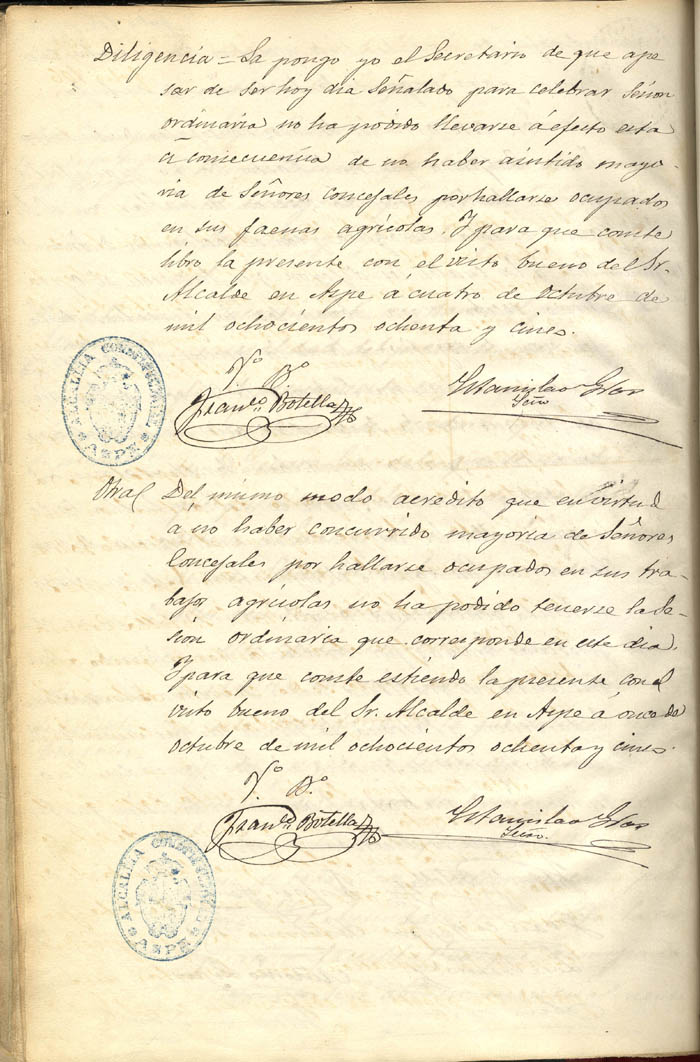 Diligencia = La pongo yo el Secretario de que ape
sar de ser hoy dia señalado para celebrar sesion
ordinaria no ha podido llevarse á efecto esta
á consecuencia de no haber asistido mayo-
ria de Señores concejales por hallarse ocupados
en sus faenas agrícolas. Y para que conste
libro la presente con el visto bueno del Sr.
Alcalde en Aspe á cuatro de Octubre de
mil ochocientos ochenta y cinco.
V.º B.º
Franc.º Botella
Estanislao
Srio
ALCALDIA CONSTITUCIONAL
ASPE
Otra Del mismo modo acredito que en virtud
á no haber concurrido mayoria de Señores
Concejales por hallarse ocupados en sus tra-
bajos agrícolas no ha podido tenerse la se-
sion ordinaria que corresponde en este dia.
Y para que conste estiendo la presente con el
visto bueno del Sr. Alcalde en Aspe á once de
octubre de mil ochocientos ochenta y cinco.
V.º B.º
Franc.º Botella
Estanislao
Srio.
ALCALDIA CONSTITUCIONAL
ASPE